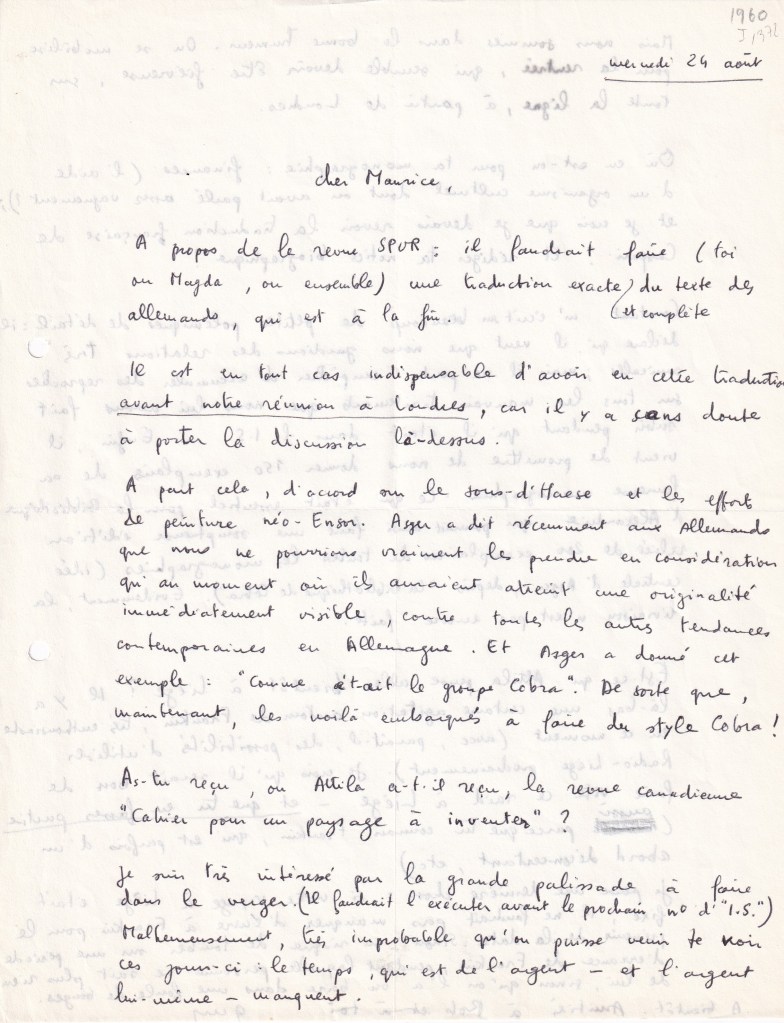 1960
J,372
mercredi 24 août
cher Maurice,
A propos de la revue SPUR : il faudrait faire (toi
ou Magda, ou ensemble) une traduction exacte du texte des
allemands, qui est à la fin. (et complète
Il est en tout cas indispensable d'avoir en cette traduction
avant notre réunion à Londres, car il y a sans doute
à porter la discussion là-dessus.
A part cela, d'accord sur le sous-d'Haese et les efforts
de peinture néo-Ensor. Asger a dit récemment aux Allemands
que nous ne pourrions vraiment les prendre en considération
qu'au moment où ils auraient atteint une originalité
immédiatement visible, contre toutes les autres tendances
contemporaines en Allemagne. Et Asger a donné cet
exemple : "Comme était le groupe Cobra". De sorte que,
maintenant, les voilà embarqués à faire du style Cobra !
As-tu reçu, ou Attila a-t-il reçu, la revue canadienne
"Cahier pour un paysage à inventer" ?
Je suis très intéressé par la grande palissade à faire
dans le verger (Il faudrait l'exécuter avant le prochain no d'"I.S.")
Malheureusement, très improbable qu'on puisse venir te voir
ces jours-ci : le temps, qui est de l'argent — et l'argent
lui-même — manquent.